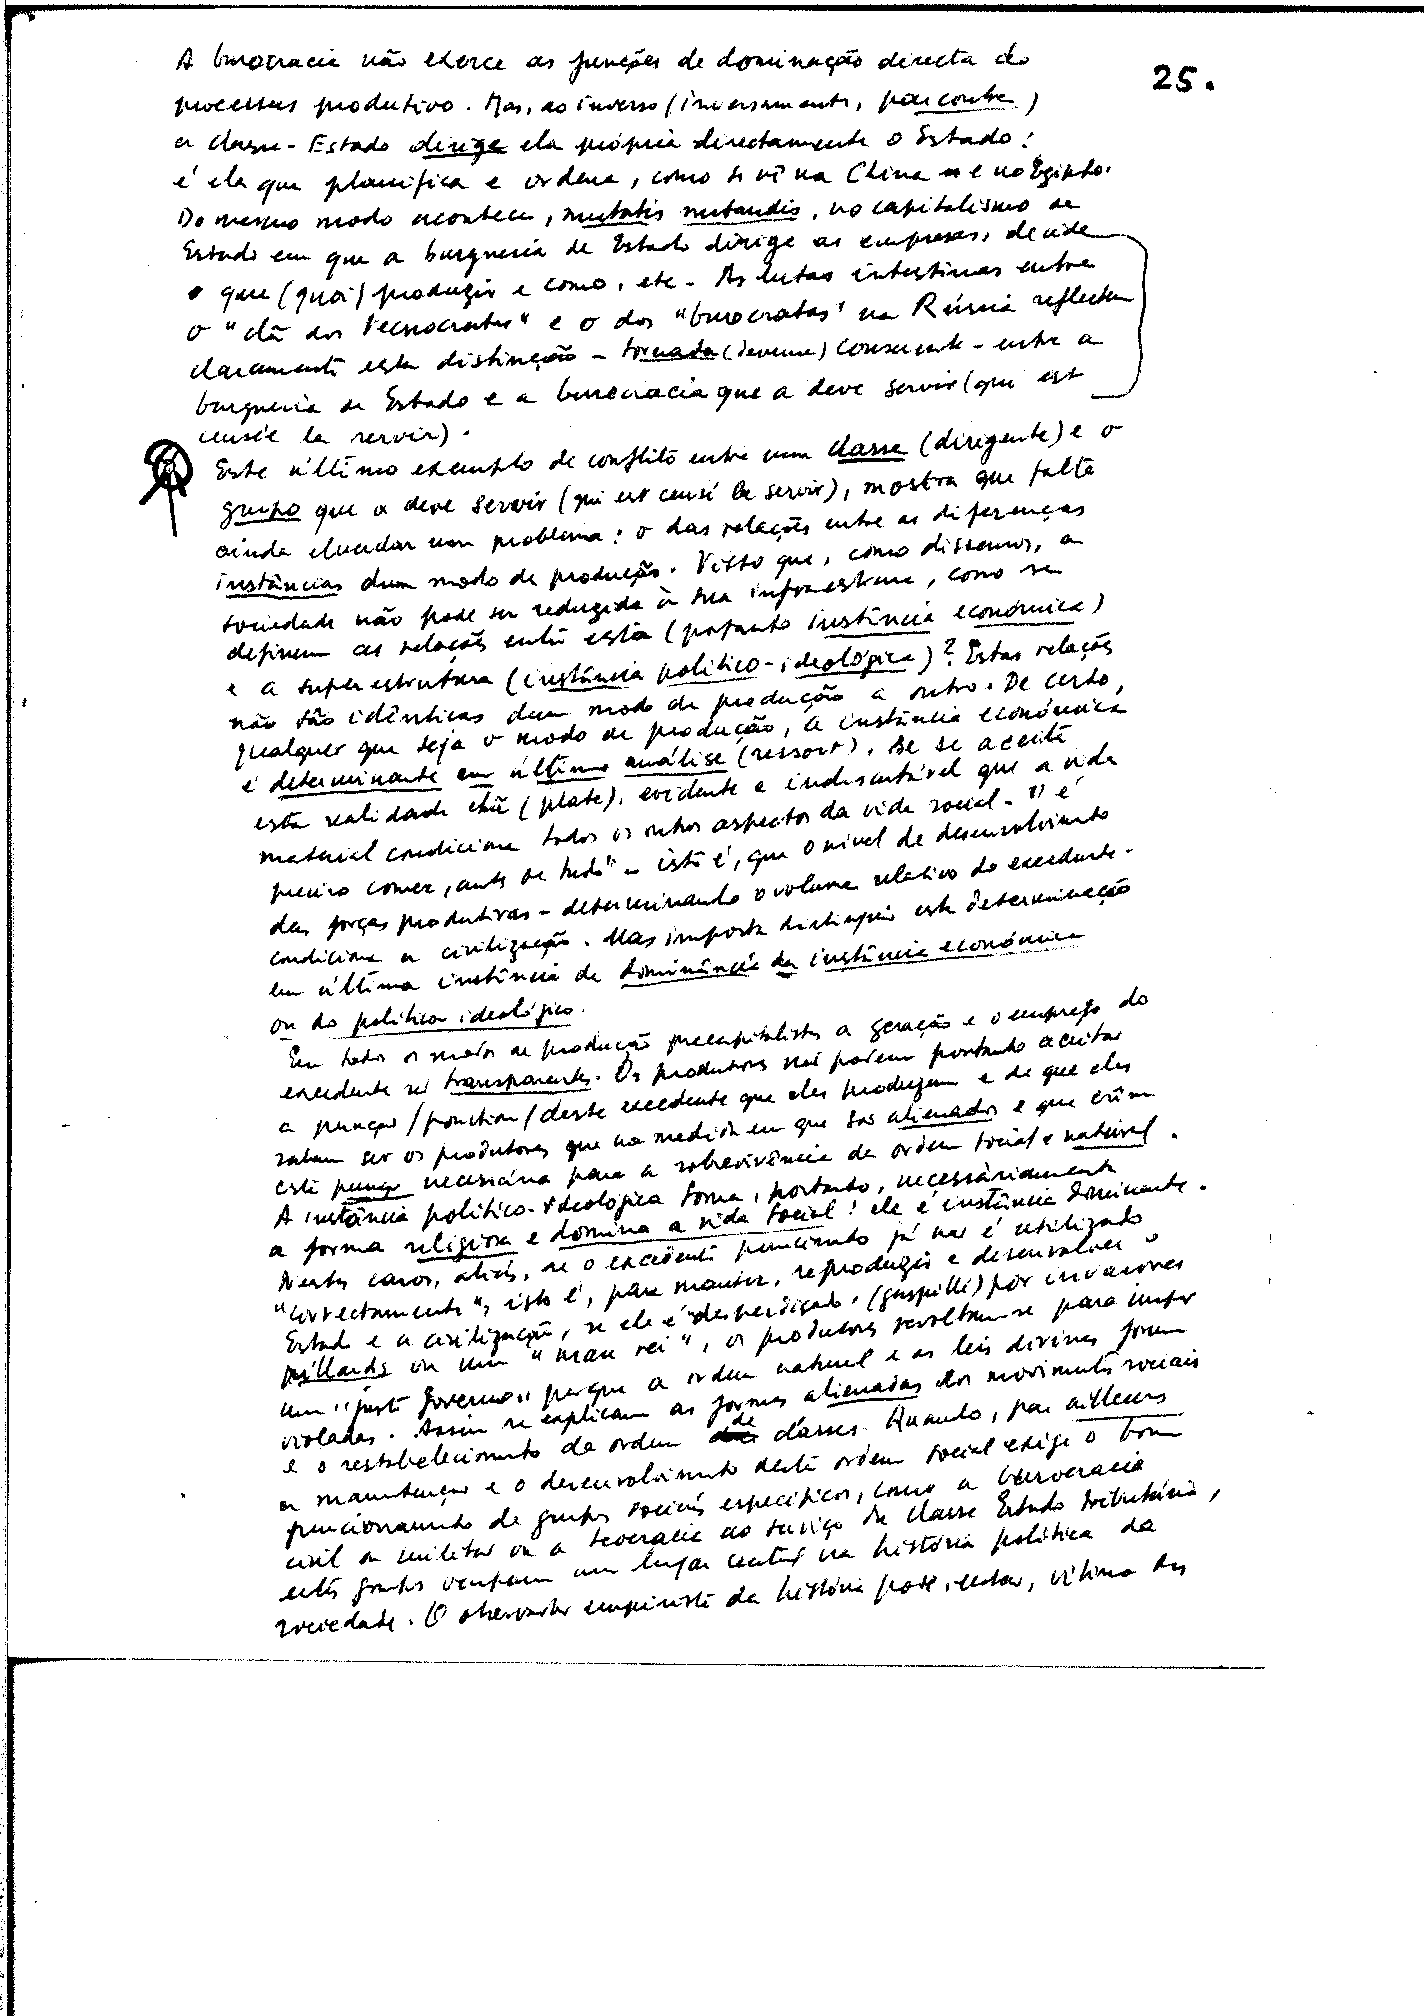 25.
A burocracia não exerce as funções de dominação directa do
processus produtivo. Mas, ao inverso (inversamente, par contre)
a classe-Estado dirige ela própria directamente o Estado:
é ela que planifica e ordena, como se vê na China e no Egipto.
Do mesmo modo acontece, mutatis mutandis, no capitalismo de
Estado em que a burguesia de Estado dirige as empresas, decide
o que (quoi) produzir e como, etc. As lutas intestinas entre
o "clã dos tecnocratas" e o dos "burocratas" na Rússia reflectem
claramente esta distinção - tornada (devenue) consciente - entre a
burguesia de Estado e a burocracia que a deve servir (qui est
censée la servir).
Este último exemplo de conflito entre uma classe (dirigente) e o
grupo que a deve servir (qui est censé la servir), mostra que falta
ainda elucidar um problema: o das relações entre as diferenças
instâncias dum modo de produção. Visto que, como dissemos, a
sociedade não pode ser reduzida à sua infraestrutura, como se
definem as relações entre esta (portanto instância económica)
e a superestrutura (instância político-ideológica)? Estas relações
não são idênticas dum modo de produção a outro. De certo,
qualquer que seja o modo de produção, a instância económica
é determinante em última análise (ressort), se se aceite
esta realidade chã (plate), evidente e indiscutível que a vida
material condiciona todos os outros aspectos da vida social - "é
preciso comer, antes de tudo" - isto é, que o nível de desenvolvimento
das forças produtivas - determinando o volume relativo do excedente -
condiciona a civilização. Mas importa distinguir esta determinação
em última instância da dominância da instância económica
ou do político ideológico.
Em todos os modos de produção precapitalistas a geração e o emprego do
excedente são transparentes. Os produtores não podem portanto aceitar
a punção /ponction/ deste excedente que eles produzem e de que eles
sabem ser os produtores que na medida em que são alienados e que crêm
esta punção necessária para a sobrevivência da ordem social e natural.
A instância político-ideológica toma, portanto, necessàriamente
a forma religiosa e domina a vida social: ela é instância dominante.
Nestes casos, aliás, se o excedente puncionado já não é utilizado
"correctamente", isto é, para manter, reproduzir e desenvolver o
Estado e a civilização, se ele é "desperdiçado" (gaspillé) por invasores
pillards ou um "mau rei", os produtores revoltam-se para impor
um "justo governo" porque a ordem natural e as leis divinas foram
violadas. Assim se explicam as formas alienadas dos movimentos sociais
e o restabelecimento da ordem de classes. Quando, par ailleurs
a manutenção e o desenvolvimento desta ordem social exige o bom
funcionamento de grupos sociais específicos, como a burocracia
civil ou militar ou a teocracia ao serviço da classe Estado tributária,
estes grupos ocupam um lugar central na história política da
sociedade. O observador empirista da história pode, então, vítima das